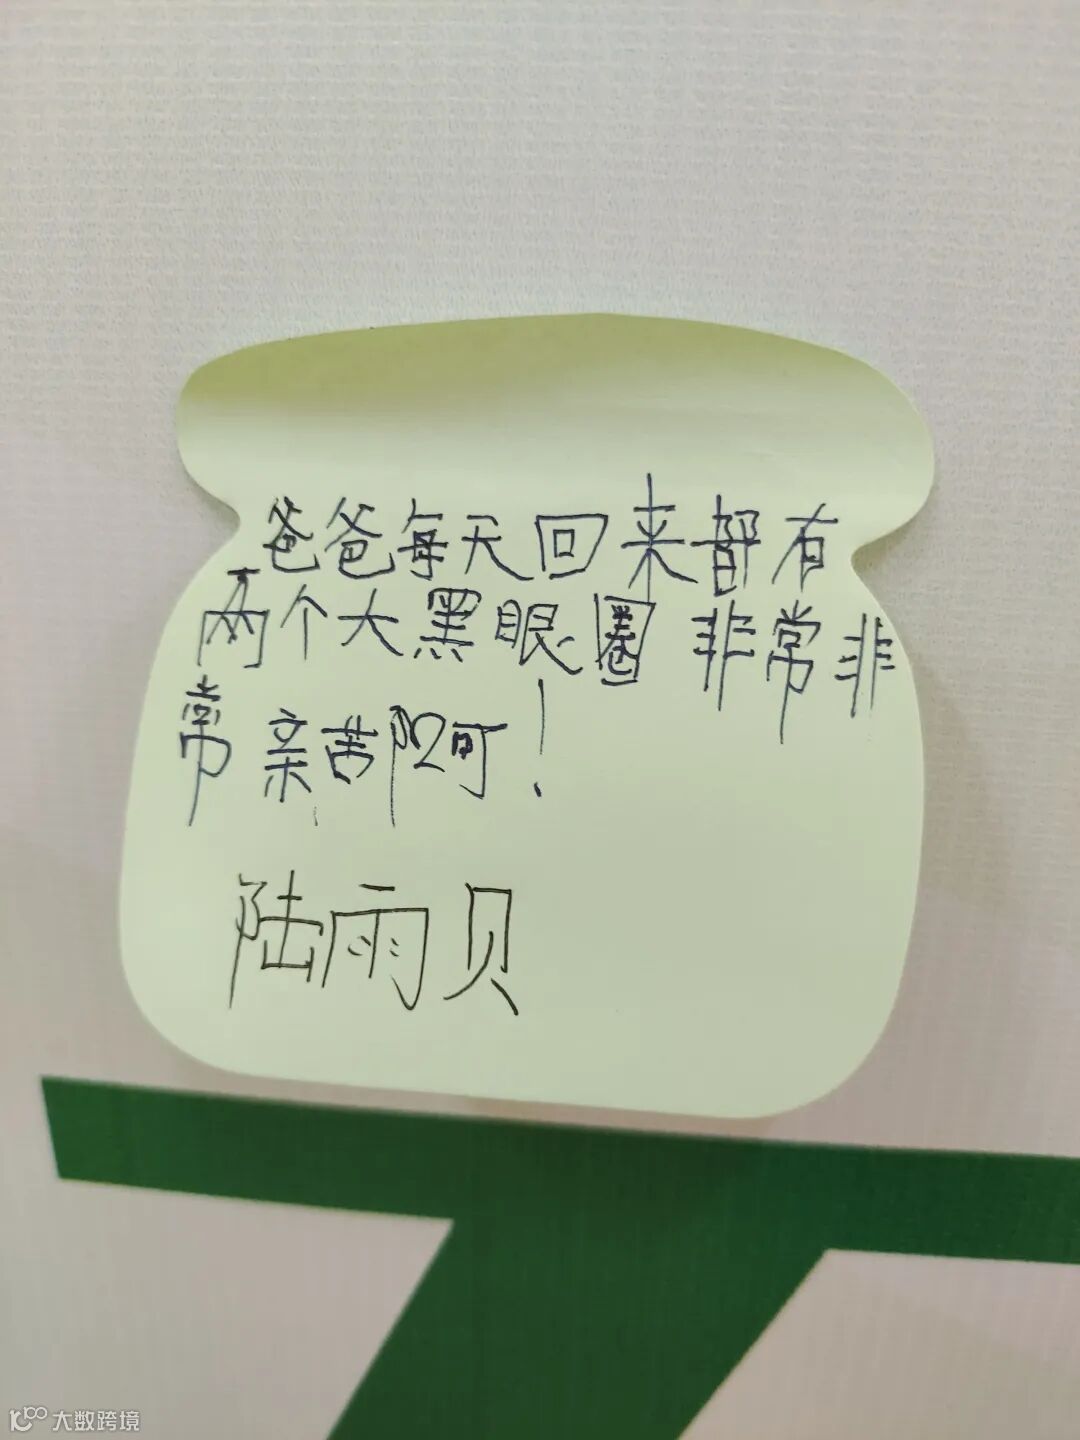 爸爸每天回来都有
两个大黑眼圈 非常非
常亲苦啊！
陆雨贝
大数跨境